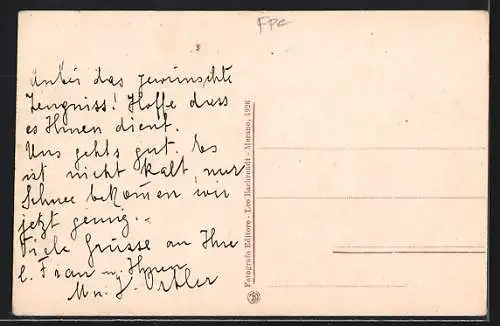 FPC
Anbei das gewünschte
Zeugniss! Hoffe dass
es Ihnen dient.
Uns gehts gut. Es
ist nicht kalt, nur
Schnee bekom̄en wir
jetzt genug.
Viele Grüsse an Ihre
l. Frau u. Ihnen
J. Ortler
Fotografo Editore - Leo Bachrendt - Merano, 1926